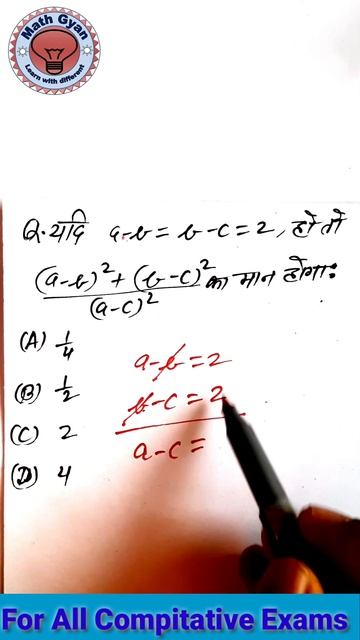 Math Gyan
Learn with different
Q. यदि a-b = b-c = 2, हो तो
(a-b)² + (b-c)² / (a-c)² का मान होगा:
(A) 1/4
(B) 1/2
(C) 2
(D) 4
a-b = 2
b-c = 2
a-c =
For All Compitative Exams